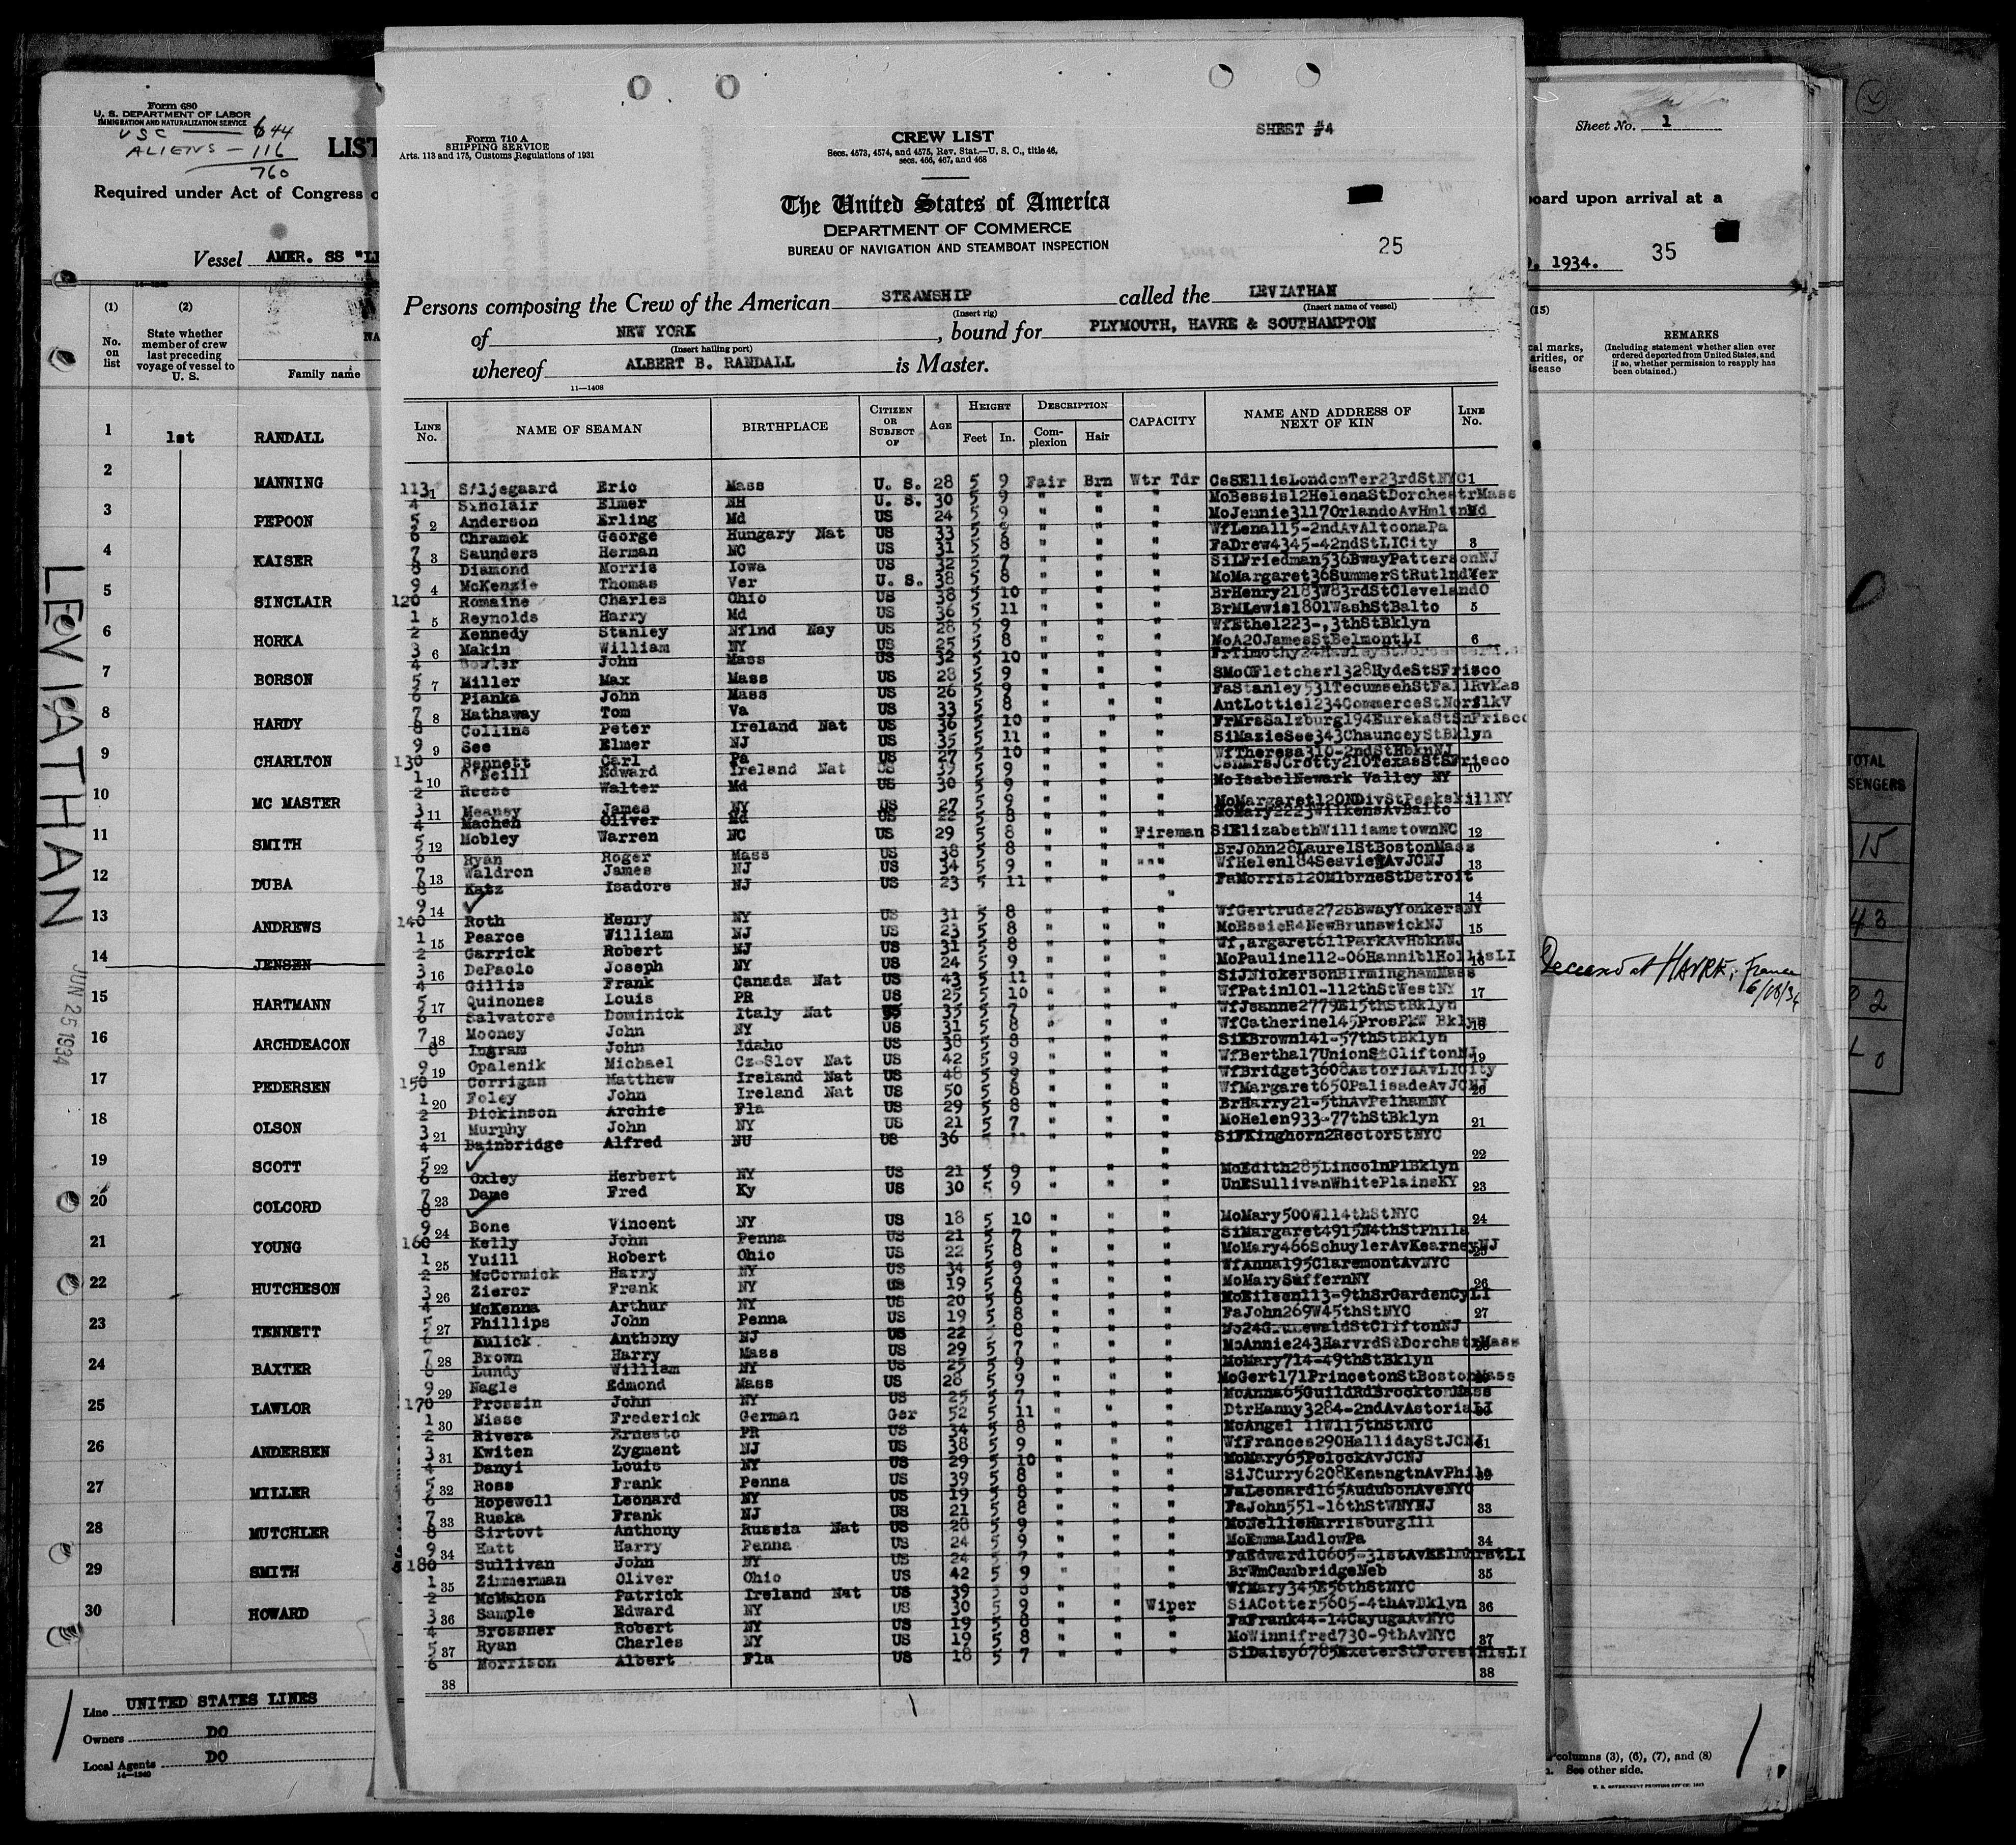 Form 680
U. S. DEPARTMENT OF LABOR
IMMIGRATION AND NATURALIZATION SERVICE
USC — 644
ALIENS — 116
760
LIST
Required under Act of Congress
Vessel AMER. SS "LE
(1) (2)
No. on list
State whether member of crew last preceding voyage of vessel to U. S.
NA
Family name
1 1st RANDALL
2 MANNING
3 PEPOON
4 KAISER
5 SINCLAIR
6 HORKA
7 BORSON
8 HARDY
9 CHARLTON
10 MC MASTER
11 SMITH
12 DUBA
13 ANDREWS
14 JENSEN
15 HARTMANN
16 ARCHDEACON
17 PEDERSEN
18 OLSON
19 SCOTT
20 COLCORD
21 YOUNG
22 HUTCHESON
23 TENNETT
24 BAXTER
25 LAWLOR
26 ANDERSEN
27 MILLER
28 MUTCHLER
29 SMITH
30 HOWARD
LEVIATHAN
JUN 25 1934
Line UNITED STATES LINES
Owners DO
Local Agents DO
14—1240
Form 710 A
SHIPPING SERVICE
Arts. 113 and 175, Customs Regulations of 1931
CREW LIST
Secs. 4573, 4574, and 4575, Rev. Stat.—U. S. C., title 46,
secs. 466, 467, and 468
SHEET #4
The United States of America
DEPARTMENT OF COMMERCE
BUREAU OF NAVIGATION AND STEAMBOAT INSPECTION
25
Persons composing the Crew of the American STEAMSHIP called the LEVIATHAN
(Insert rig) (Insert name of vessel)
of NEW YORK, bound for PLYMOUTH, HAVRE & SOUTHAMPTON
(Insert hailing port)
whereof ALBERT B. RANDALL is Master.
11—1408
LINE No. NAME OF SEAMAN BIRTHPLACE CITIZEN OR SUBJECT OF AGE HEIGHT Feet In. DESCRIPTION Complexion Hair CAPACITY NAME AND ADDRESS OF NEXT OF KIN LINE No.
113 1 Siljegaard Eric Mass U. S. 28 5 9 Fair Brn Wtr Tdr CsSEllisLondonTer23rdStNYC 1
4 Sinclair Elmer NH U. S. 30 5 9 " " " MoBessis12HelenaStDorchestrMass
5 2 Anderson Erling Md US 24 5 9 " " " MoJennie3117OrlandoAvHmltnMd
6 Chramek George Hungary Nat US 33 5 " " " WfLena115-2ndAvAltoonaPa
7 3 Saunders Herman NC US 31 5 8 " " " FaDrew4345-42ndStLICity 3
8 Diamond Morris Iowa US 32 5 7 " " " SiLFriedman536BwayPattersonNJ
9 4 McKenzie Thomas Ver U. S. 38 5 8 " " " MoMargaret36SummerStRutlndVer
120 Romaine Charles Ohio US 38 5 10 " " " BrHenry2183W83rdStClevelandO
1 5 Reynolds Harry Md US 36 5 11 " " " BrMLewis1801WashStBalto 5
2 Kennedy Stanley Nflnd Nay US 28 5 9 " " " WfEthel223-,3thStBklyn
3 6 Makin William NY US 25 5 8 " " " MoA20JamesStBelmontLI 6
4 Bowler John Mass US 32 5 10 " " "
5 7 Miller Max Mass US 28 5 9 " " " SMcGFletcher1328HydeStSFrisco
6 Pianka John Mass US 26 5 9 " " " FaStanley531TecumsehStFallRvMas
7 8 Hathaway Tom Va US 33 5 8 " " " AntLottie1234CommerceStNorflkV
8 Collins Peter Ireland Nat US 36 5 10 " " " FrMrsSalzburg194EurekaStSnFrisco
9 9 See Elmer NJ US 35 5 11 " " " SiMazieSee343ChaunceyStBklyn
130 Bennett Carl Pa US 27 5 10 " " " WfTheresa310-2ndStHbknNJ
1 10 O'Neill Edward Ireland Nat US 39 5 9 " " " CsMrsJCrotty210TexasStSFrisco 10
2 Reese Walter Md US 30 5 9 " " " MoIsabelNewark Valley NY
3 11 Meaney James NY US 27 5 9 " " " MoMargaret120NDivStPeekskillNY
4 Machen Oliver Md US 22 5 8 " " " MoMary2223WilkensAvBalto
5 12 Mobley Warren NC US 29 5 8 " " Fireman SiElizabethWilliamstownNC 12
6 Ryan Roger Mass US 38 5 8 " " " BrJohn28LaurelStBostonMass
7 13 Waldron James NJ US 34 5 9 " " """ WfHelen184SeaviewAvJCNJ 13
8 Katz Isadore NJ US 23 5 11 " " " FaMorris120MlbrneStDetroit
9 14 ✓ 14
140 Roth Henry NY US 31 5 8 " " " WfGertrude272SBwayYonkersNY
1 15 Pearce William NJ US 23 5 8 " " " MoEssieR4NewBrunswickNJ 15
2 Garrick Robert NJ US 31 5 8 " " " Wf,argaret611ParkAvHbknNJ
3 16 DePaolo Joseph NY US 24 5 9 " " " MoPauline112-06HanniblHollisLI 16
4 Gillis Frank Canada Nat US 43 5 11 " " " SiJNickersonBirminghamMass
5 17 Quinones Louis PR US 25 5 10 " " " WfPatin101-112thStWestNY 17
6 Salvatore Dominick Italy Nat US 35 5 7 " " " WfJeanne2779E15thStBklyn
7 18 Mooney John NY US 31 5 8 " " " WfCatherine145ProsPkW Bklyn 18
8 Ingram John Idaho US 38 5 8 " " " SiEBrown141-57thStBklyn
9 19 Opalenik Michael Cz-Slov Nat US 42 5 9 " " " WfBertha17UnionStCliftonNJ 19
150 Corrigan Matthew Ireland Nat US 48 5 9 " " " WfBridget3608AstoriaAvLICity
1 20 Foley John Ireland Nat US 50 5 8 " " " WfMargaret650PalisadeAvJCNJ 20
2 Dickinson Archie Fla US 29 5 8 " " " BrHarry21-5thAvPelhamNY
3 21 Murphy John NY US 21 5 7 " " " MoHelen933-77thStBklyn 21
4 Bainbridge Alfred NU US 36 5 11 " " " SiFKinghorn2RectorStNYC
5 22 ✓ " 22
6 Oxley Herbert NY US 21 5 9 " " " MoEdith285LincolnPlBklyn
7 23 Dame Fred Ky US 30 5 9 " " " UnESullivanWhitePlainsKY 23
8 ✓
9 24 Bone Vincent NY US 18 5 10 " " " MoMary500W114thStNYC 24
160 Kelly John Penna US 21 5 7 " " " SiMargaret4915N4thStPhila
1 25 Yuill Robert Ohio US 22 5 8 " " " MoMary466SchuylerAvKearneyNJ 25
2 McCormick Harry NY US 34 5 9 " " " WfAnna195ClaremontAvNYC
3 26 Zierer Frank NY US 19 5 9 " " " MoMarySuffernNY 26
4 McKenna Arthur NY US 20 5 8 " " " MoEileen113-9thSrGardenCyLI
5 27 Phillips John Penna US 19 5 8 " " " FaJohn269W45thStNYC 27
6 Kulick Anthony NJ US 22 5 8 " " "
7 28 Brown Harry Mass US 29 5 7 " " " MoAnnie243HarvrdStDorchstrMass 28
8 Lundy William NY US 25 5 9 " " " MoMary714-49thStBklyn
9 29 Nagle Edmond Mass US 28 5 9 " " " MoGert171PrincetonStBostonMass
170 Prossin John NY US 25 5 7 " " " MoAnna65GuildRdBrocktonMass
1 30 Nisse Frederick German Ger 52 5 11 " " " DtrHanny3284-2ndAvAstoriaLI
2 Rivera Ernesto PR US 34 5 8 " " " MoAngel 11W115thStNYC
3 31 Kwiten Zygment NJ US 38 5 9 " " " WfFrances290HallidayStJCNJ 31
4 Danyi Louis NY US 29 5 10 " " " MoMary65PolockAvJCNJ
5 32 Ross Frank Penna US 39 5 8 " " " SiJCurry6208KensngtnAvPhila 32
6 Hopewell Leonard NY US 19 5 8 " " " FaLeonard165AudubonAveNYC
7 33 Ruska Frank NJ US 21 5 8 " " " FaJohn551-16thStWNYNJ 33
8 Sirtovt Anthony Russia Nat US 28 5 9 " " " MoNellieHarrisburgIll
9 34 Hatt Harry Penna US 24 5 9 " " " MoEmmaLudlowPa 34
180 Sullivan John NY US 24 5 7 " " " FaEdward10605-31stAvEElmhrstLI
1 35 Zimmerman Oliver Ohio US 42 5 9 " " " BrWmCambridgeNeb 35
2 McMahon Patrick Ireland Nat US 39 5 8 " " " WfMary345E56thStNYC
3 36 Sample Edward NY US 30 5 9 " " Wiper SiACotter5605-4thAvBklyn 36
4 Brossner Robert NY US 19 5 8 " " " FaFrank44-14CayugaAvNYC
5 37 Ryan Charles NY US 19 5 8 " " " MoWinnifred730-9thAvNYC 37
6 Morrison Albert Fla US 18 5 7 " " " SiDaisy6785ExeterStForestHlsLI
38 38
Sheet No. 1
oard upon arrival at a
, 1934. 35
(15)
cal marks,
arities, or
isease
REMARKS
(Including statement whether alien ever
ordered deported from United States, and
if so, whether permission to reapply has
been obtained.)
Deceased at HAVRE, France
6/08/34
TOTAL
SENGERS
15
43
2
0
columns (3), (6), (7), and (8)
See other side.
U. S. GOVERNMENT PRINTING OFFICE